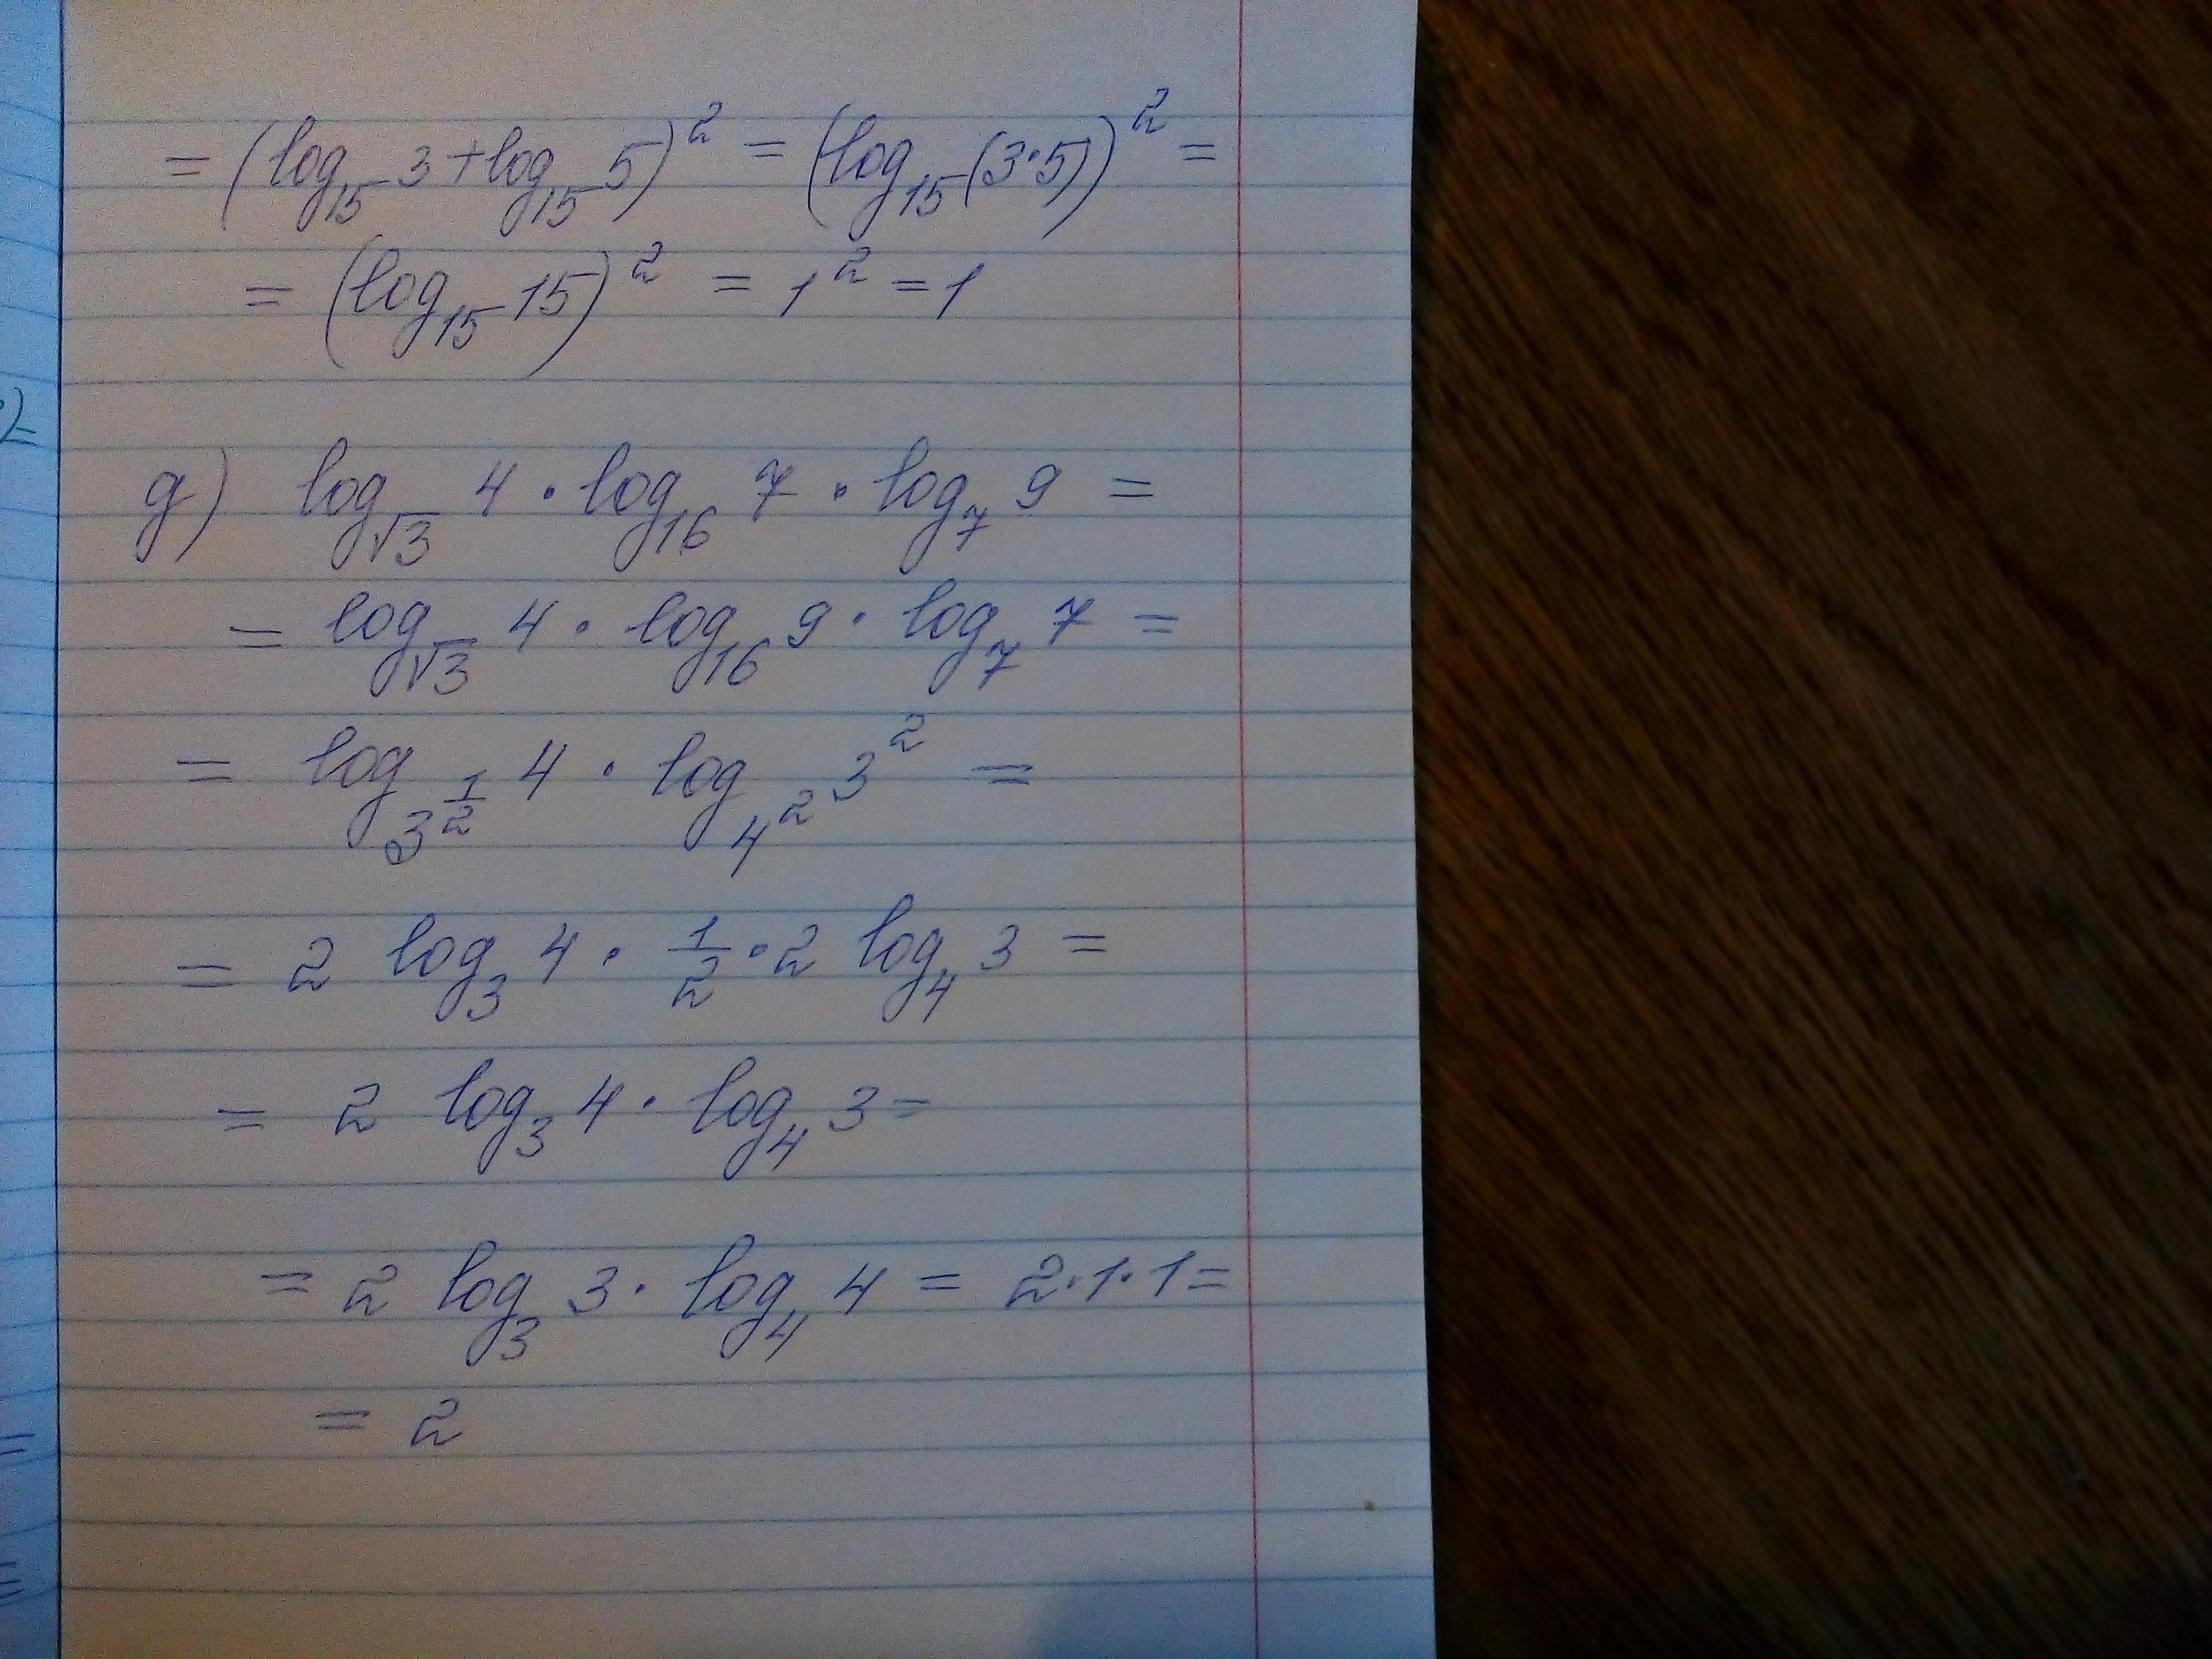 = (log₁₅ 3 + log₁₅ 5)² = (log₁₅ (3·5))² =
= (log₁₅ 15)² = 1² = 1
g) log_√3 4 · log₁₆ 7 · log₇ 9 =
= log_√3 4 · log₁₆ 9 · log₇ 7 =
= log_{3^{1/2}} 4 · log_{4²} 3² =
= 2 log₃ 4 · 1/2 · 2 log₄ 3 =
= 2 log₃ 4 · log₄ 3 =
= 2 log₃ 3 · log₄ 4 = 2·1·1 =
= 2